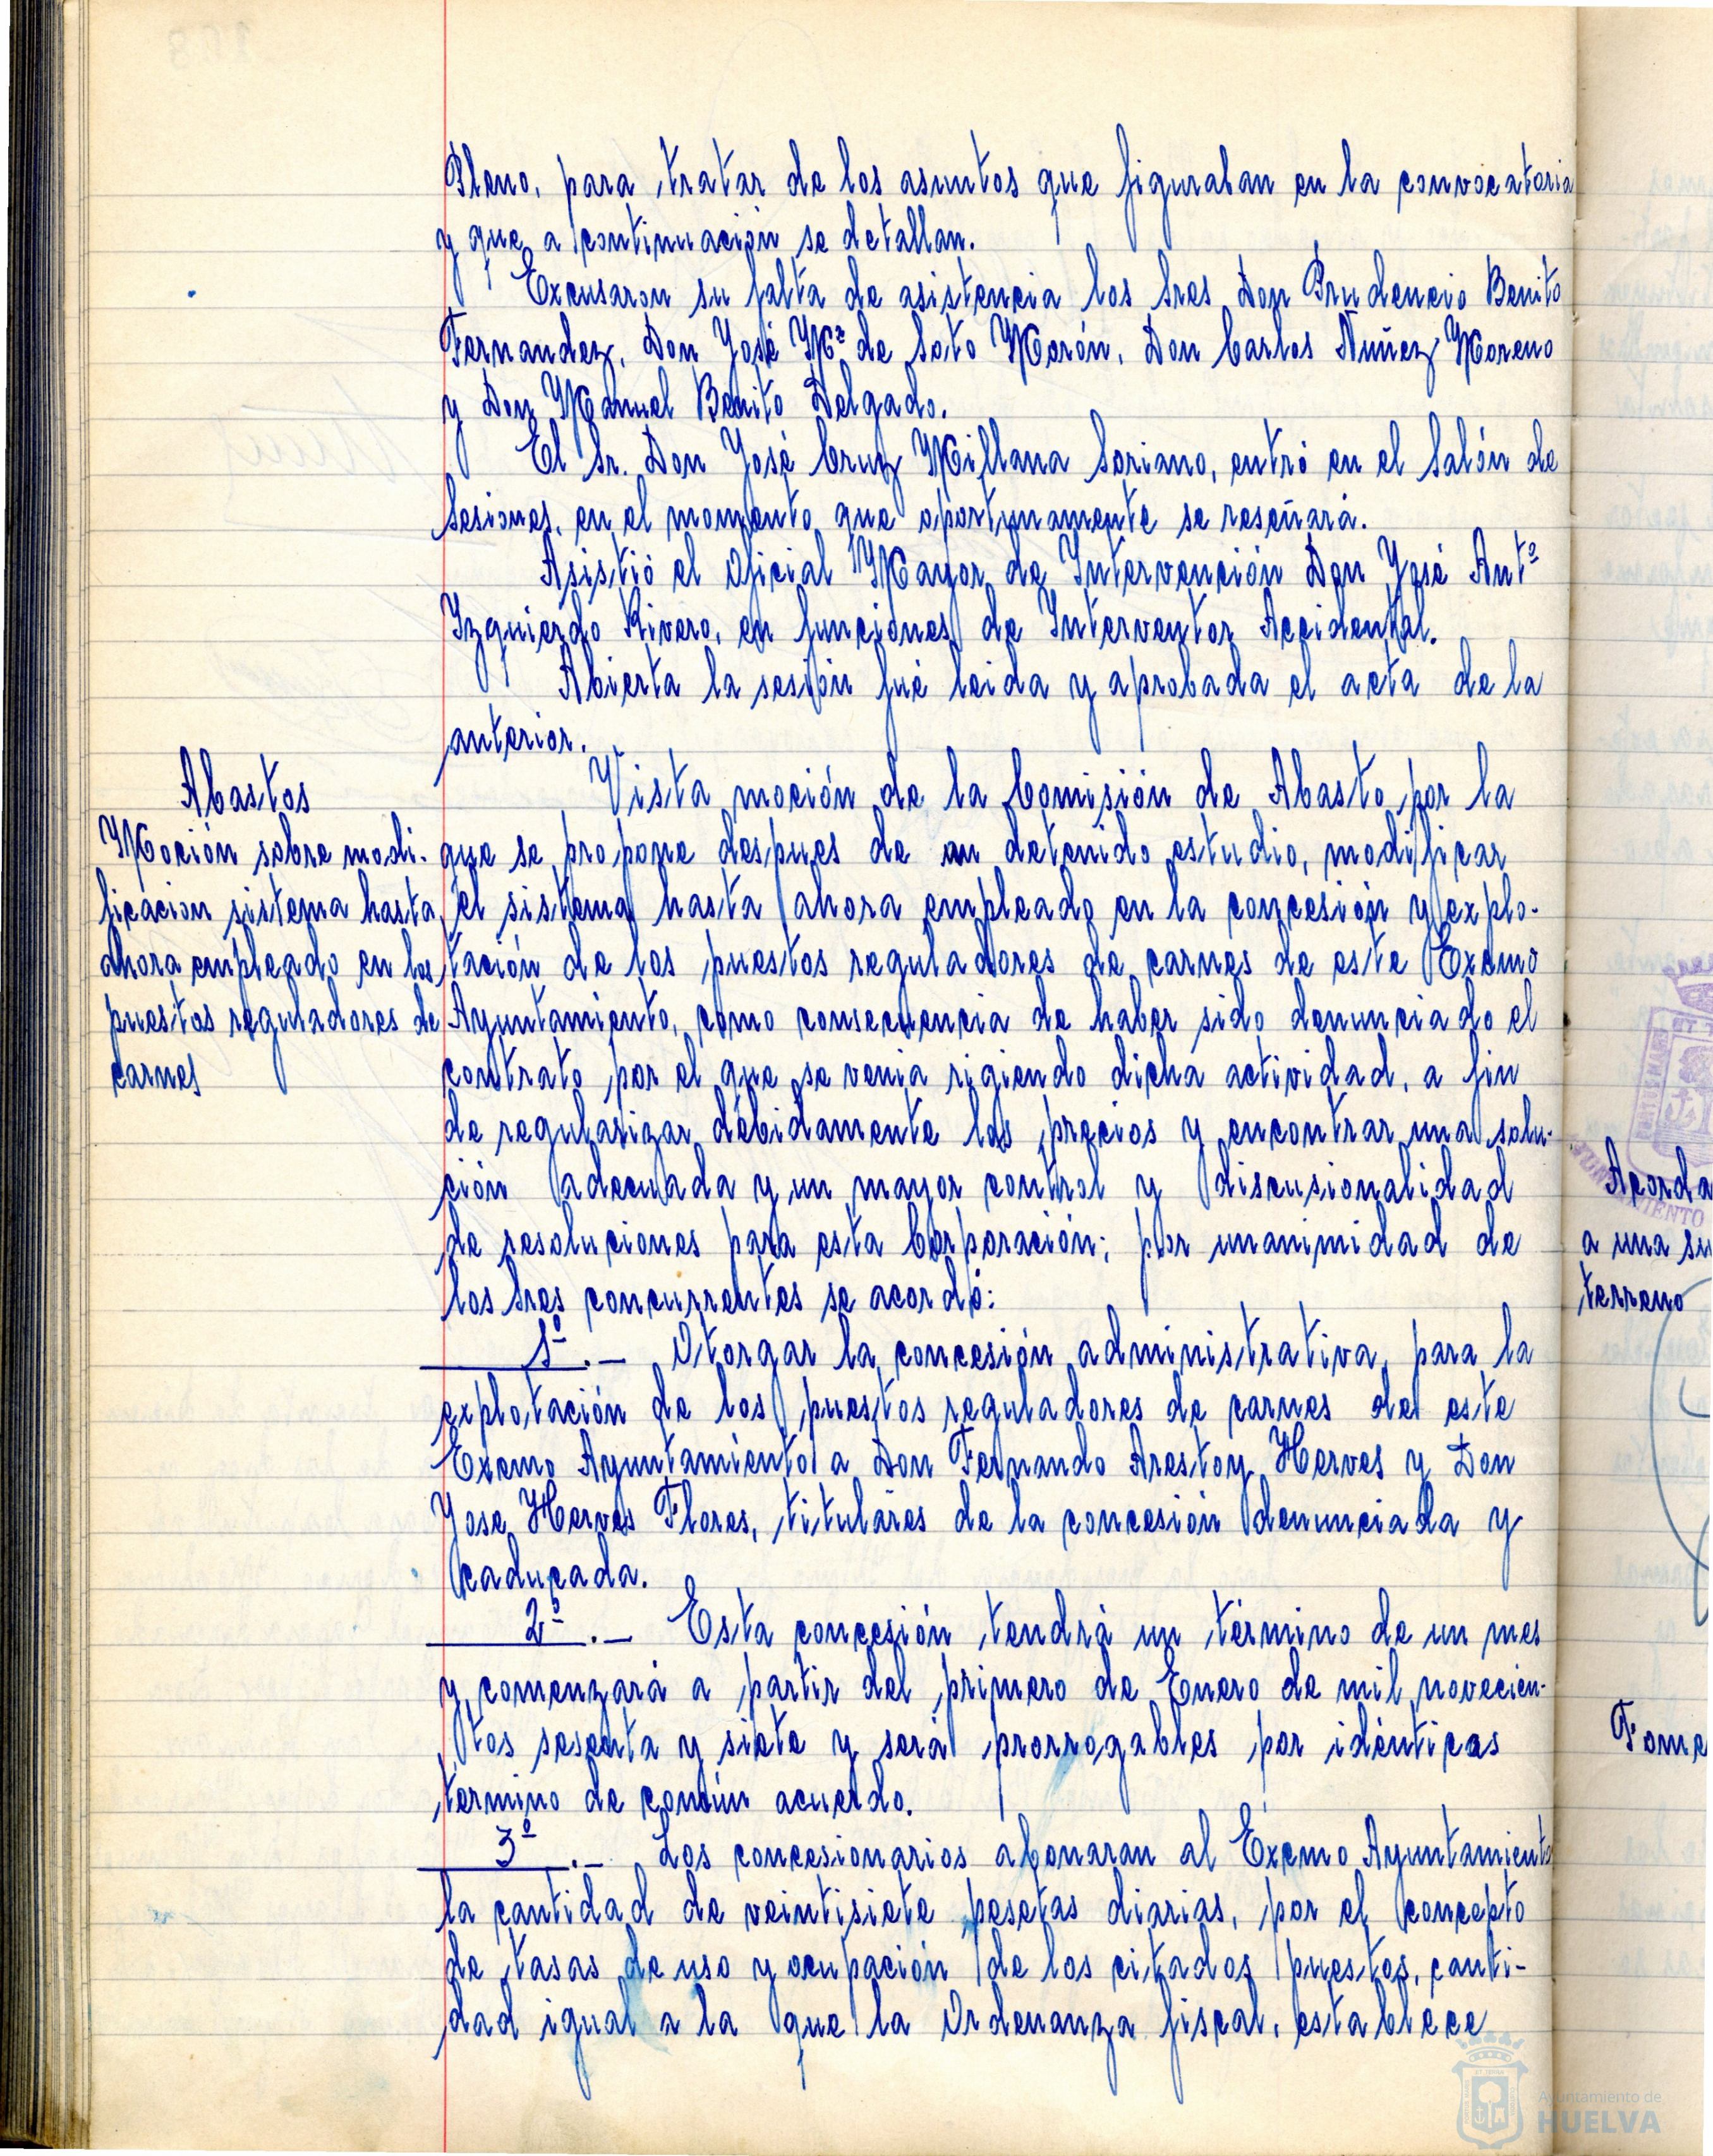 Pleno, para tratar de los asuntos que figuraban en la convocatoria
y que a continuación se detallan.
Excusaron su falta de asistencia los Sres Don Prudencio Benito
Fernandez, Don José Mª de Soto Morón, Don Carlos Nuñez Moreno
y Don Manuel Benito Delgado.
El Sr. Don José Cruz Millana Soriano, entró en el Salón de
Sesiones, en el momento que oportunamente se reseñará.
Asistió el Oficial Mayor de Intervención Don José Antº
Izquierdo Rivero, en funciones de Interventor Accidental.
Abierta la sesión fué leida y aprobada el acta de la
anterior.
Abastos
Moción sobre modi-
ficación sistema hasta
ahora empleado en los
puestos reguladores de
carnes
Vista moción de la Comisión de Abasto por la
que se propone despues de un detenido estudio, modificar
el sistema hasta ahora empleado en la concesión y explo-
tación de los puestos reguladores de carnes de este Excmo
Ayuntamiento, como consecuencia de haber sido denunciado el
contrato por el que se venia rigiendo dicha actividad, a fin
de regularizar debidamente los precios y encontrar una solu-
ción adecuada y un mayor control y discusionalidad
de resoluciones para esta Corporación; por unanimidad de
los Sres concurrentes se acordó:
1º.- Otorgar la concesión administrativa, para la
explotación de los puestos reguladores de carnes de este
Excmo Ayuntamiento a Don Fernando Arestoy Herves y Don
Jose Herves Flores, titulares de la concesión denunciada y
caducada.
2º.- Esta concesión tendrá un término de un mes
y comenzará a partir del primero de Enero de mil novecien-
tos sesenta y siete y será prorrogables por idénticos
termino de común acuerdo.
3º.- Los concesionarios abonaran al Excmo Ayuntamiento
la cantidad de veintisiete pesetas diarias, por el concepto
de tasas de uso y ocupación de los citados puestos, canti-
dad igual a la que la Ordenanza fiscal, establece
Acorda
a una su
terreno
Fome
Ayuntamiento de
HUELVA